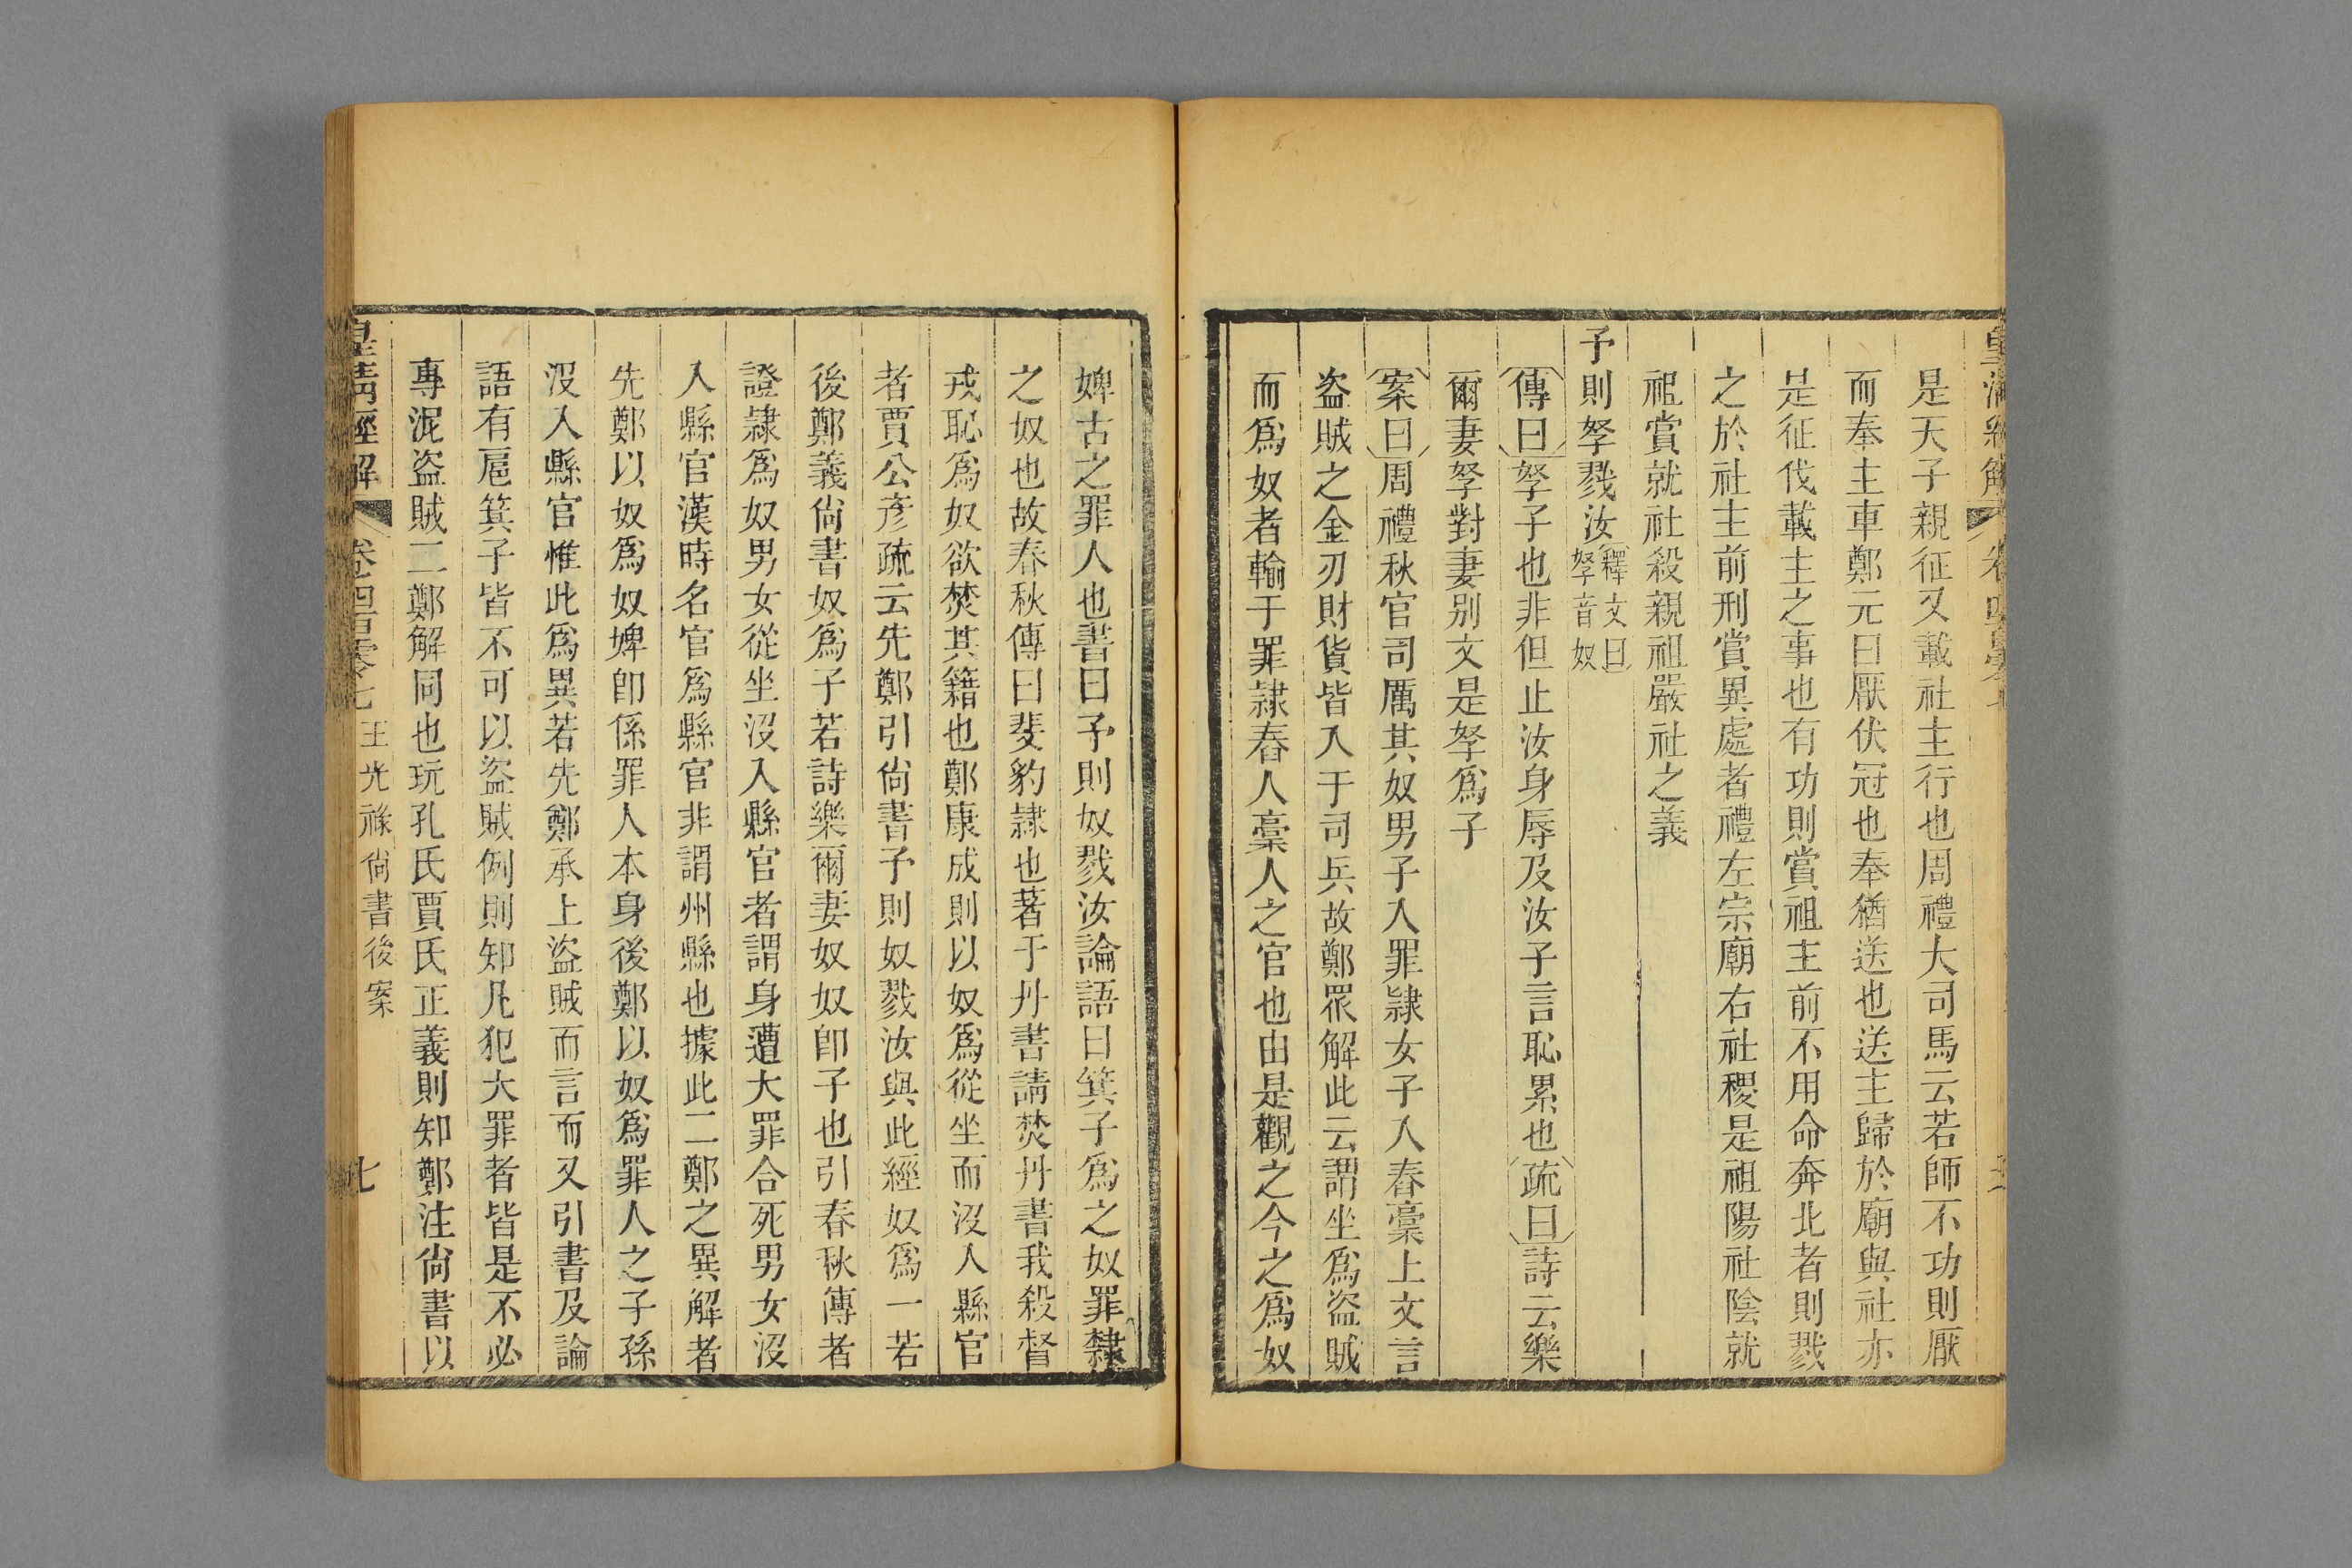 是天子親征又載社主行也周禮大司馬云若師不功則厭
而奉主車鄭元曰厭伏冠也奉猶送也送主歸於廟與社亦
是征伐載主之事也有功則賞祖主前不用命奔北者則戮
之於社主前刑賞異處者禮左宗廟右社稷是祖陽社陰就
祖賞就社殺親祖嚴社之義
予則孥戮汝釋文曰孥音奴
傳曰孥子也非但止汝身辱及汝子言恥累也疏曰詩云樂
爾妻孥對妻別文是孥爲子
案曰周禮秋官司厲其奴男子入罪隷女子入舂稾上文言
盜賊之金刃財貨皆入于司兵故鄭眾解此云謂坐爲盜賊
而爲奴者輸于罪隷舂人稾人之官也由是觀之今之爲奴
婢古之罪人也書曰予則奴戮汝論語曰箕子爲之奴罪隸
之奴也故春秋傳曰斐豹隷也著于丹書請焚丹書我殺督
戎恥爲奴欲焚其籍也鄭康成則以奴爲從坐而沒入縣官
者賈公彥疏云先鄭引尙書予則奴戮汝與此經奴爲一若
後鄭義尙書奴爲子若詩樂爾妻奴奴卽子也引春秋傳者
證隷爲奴男女從坐沒入縣官者謂身遭大罪合死男女沒
入縣官漢時名官爲縣官非謂州縣也據此二鄭之異解者
先鄭以奴爲奴婢卽係罪人本身後鄭以奴爲罪人之子孫
沒入縣官惟此爲異若先鄭承上盜賊而言而又引書及論
語有扈箕子皆不可以盜賊例則知凡犯大罪者皆是不必
專泥盜賊二鄭解同也玩孔氏賈氏正義則知鄭注尙書以
皇淸經解
卷四百零七
王光祿尙書後案
七